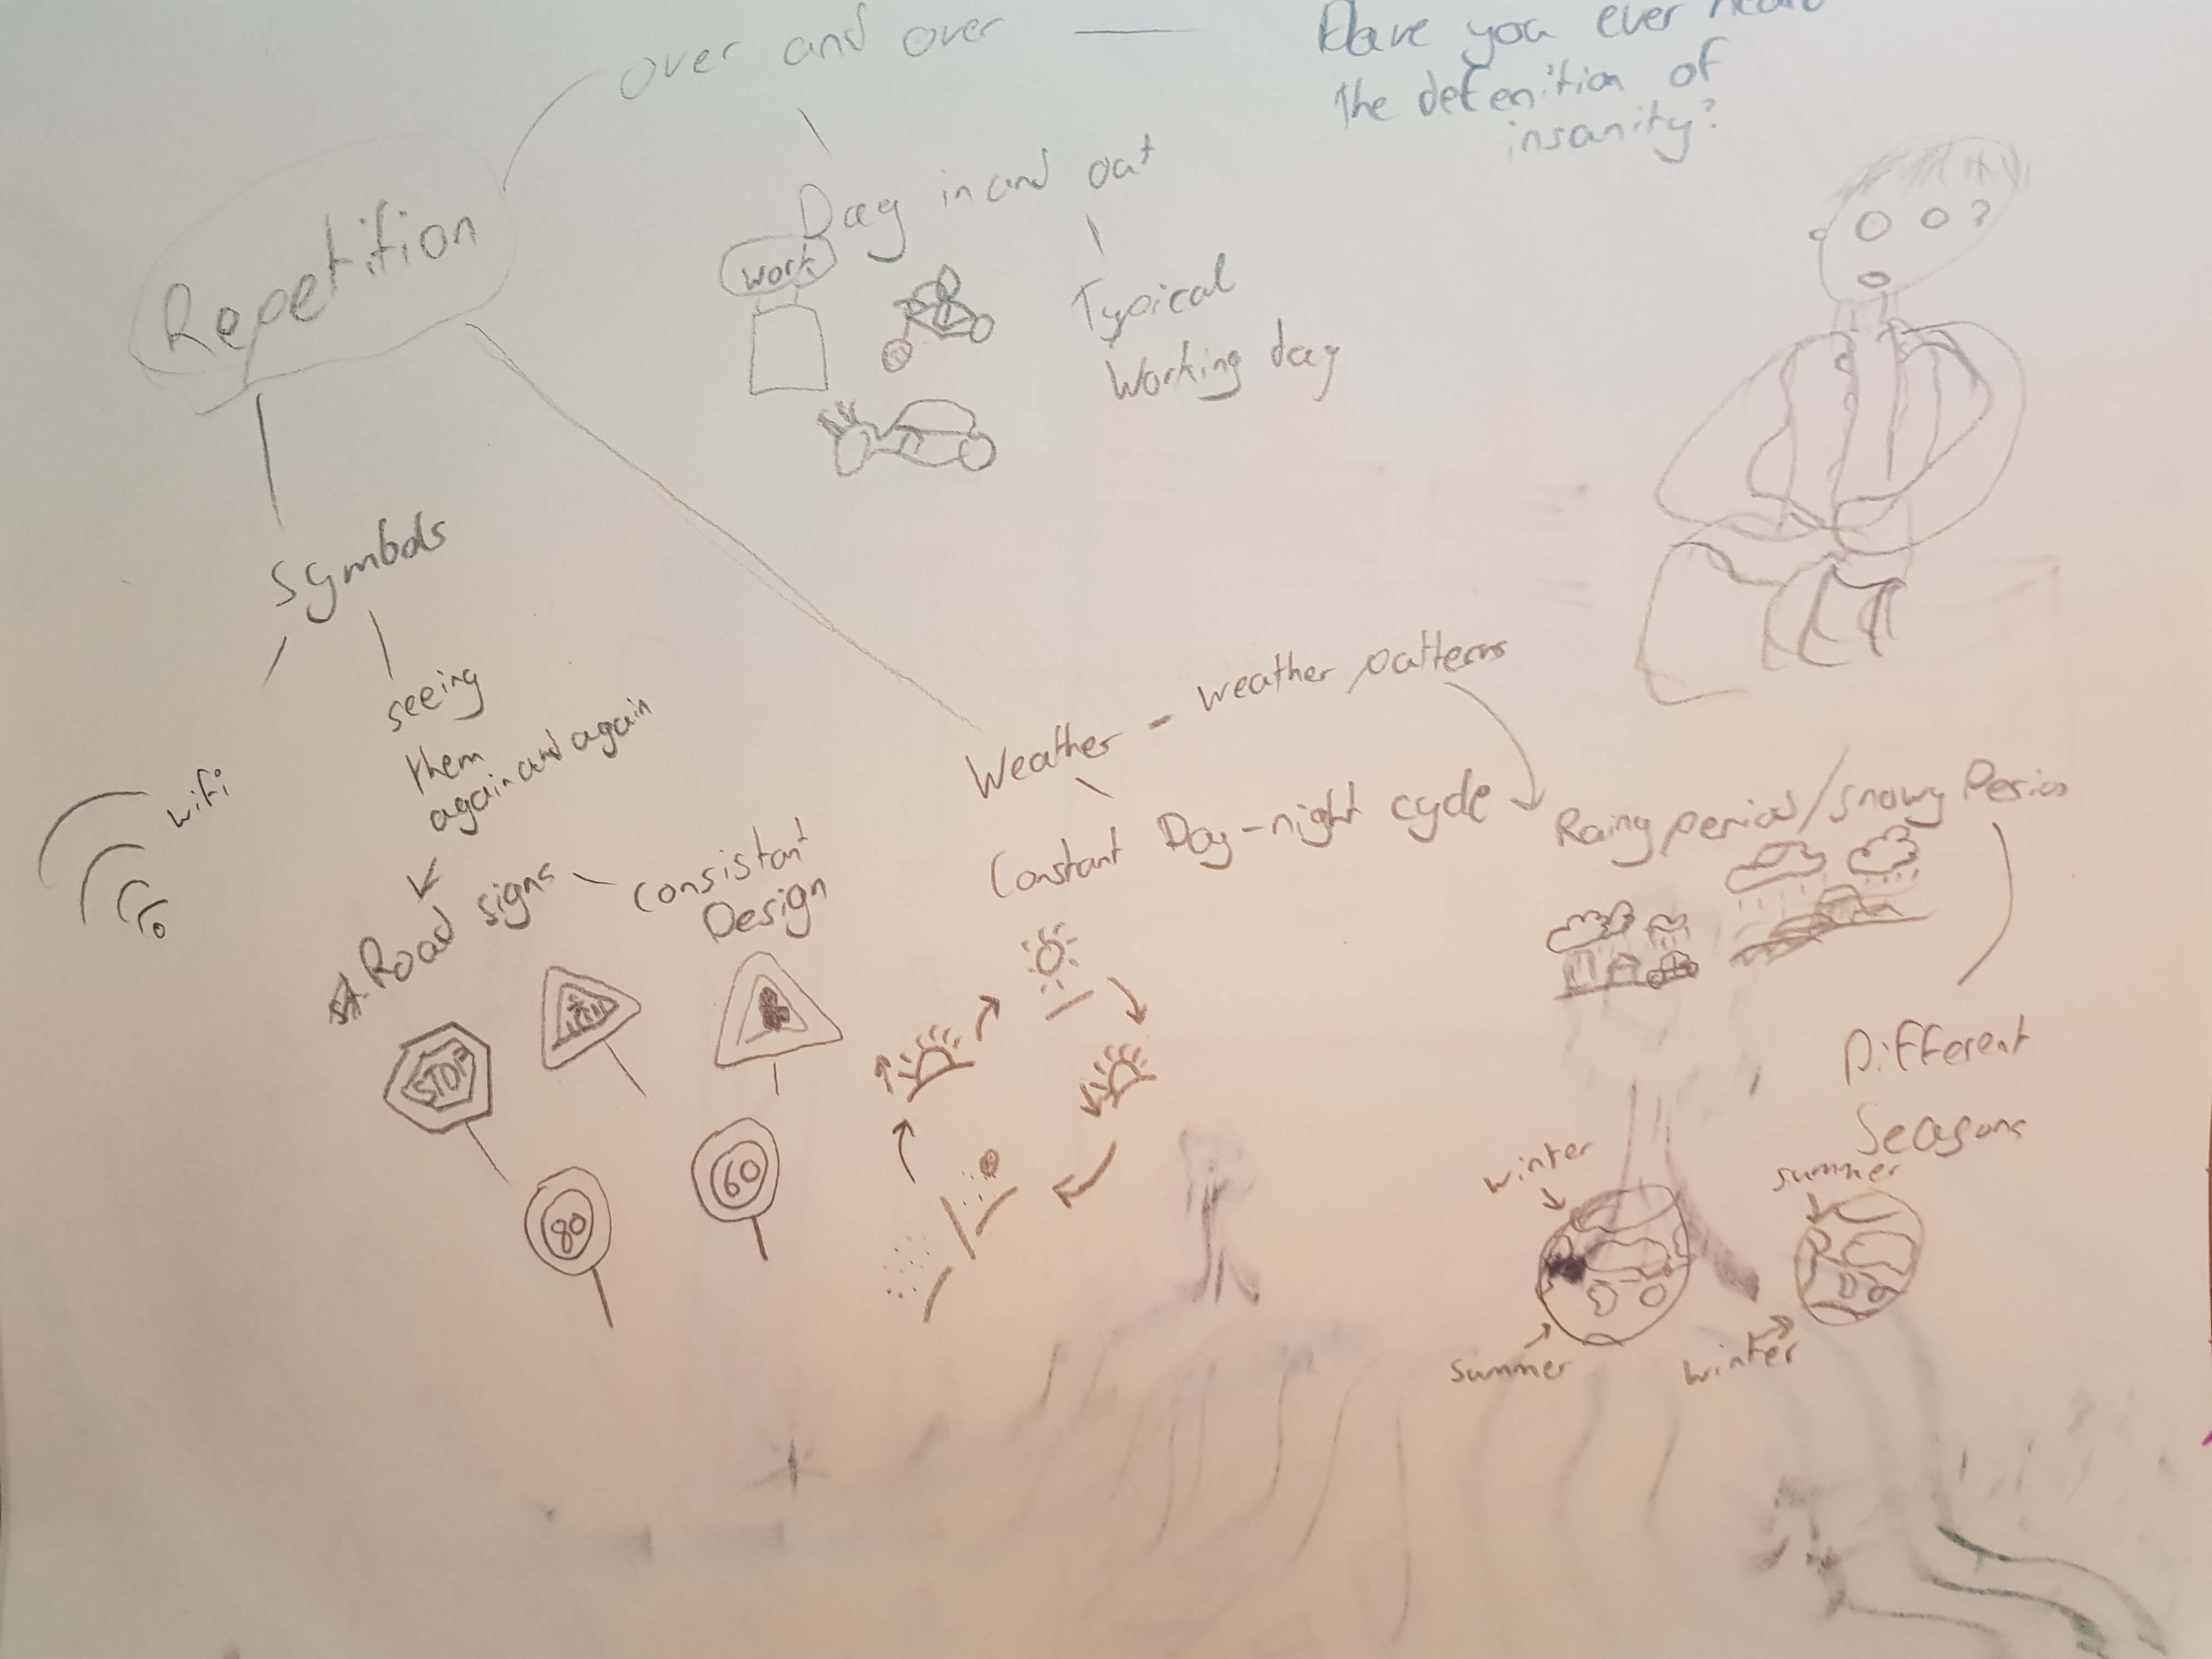 over and over
Have you ever heard
the defenition of
insanity?
Repetition
Day in and out
work
Typical
Working day
Symbols
seeing
them
again and again
wifi
Road signs
consistant
Design
STOP
80
60
Weather - weather patterns
Constant Day-night cycle
Rainy period/snowy Period
Different
Seasons
winter
summer
summer
winter